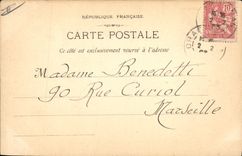 RÉPUBLIQUE FRANÇAISE
CARTE POSTALE
Ce côté est exclusivement réservé à l'adresse
Madame Benedetti
90 Rue Curiol
Marseille